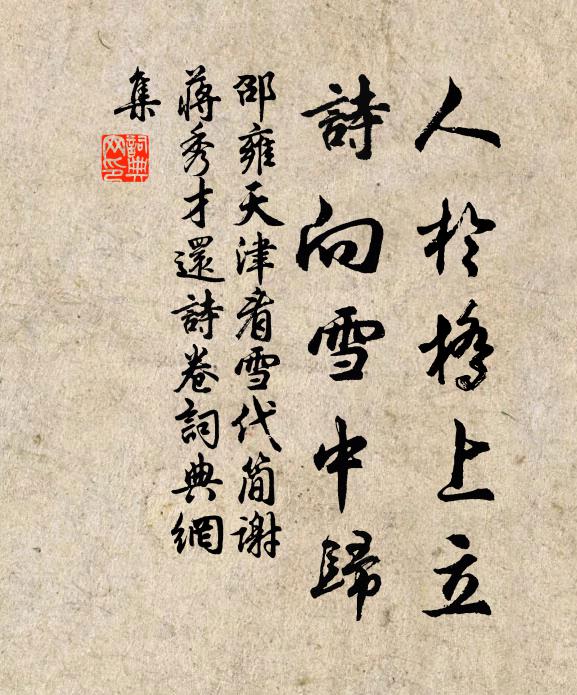 人於橋上立
詩向雪中歸
邵雍天津看雪代簡謝
蔣秀才還詩卷詞典網
集
詞典
网印